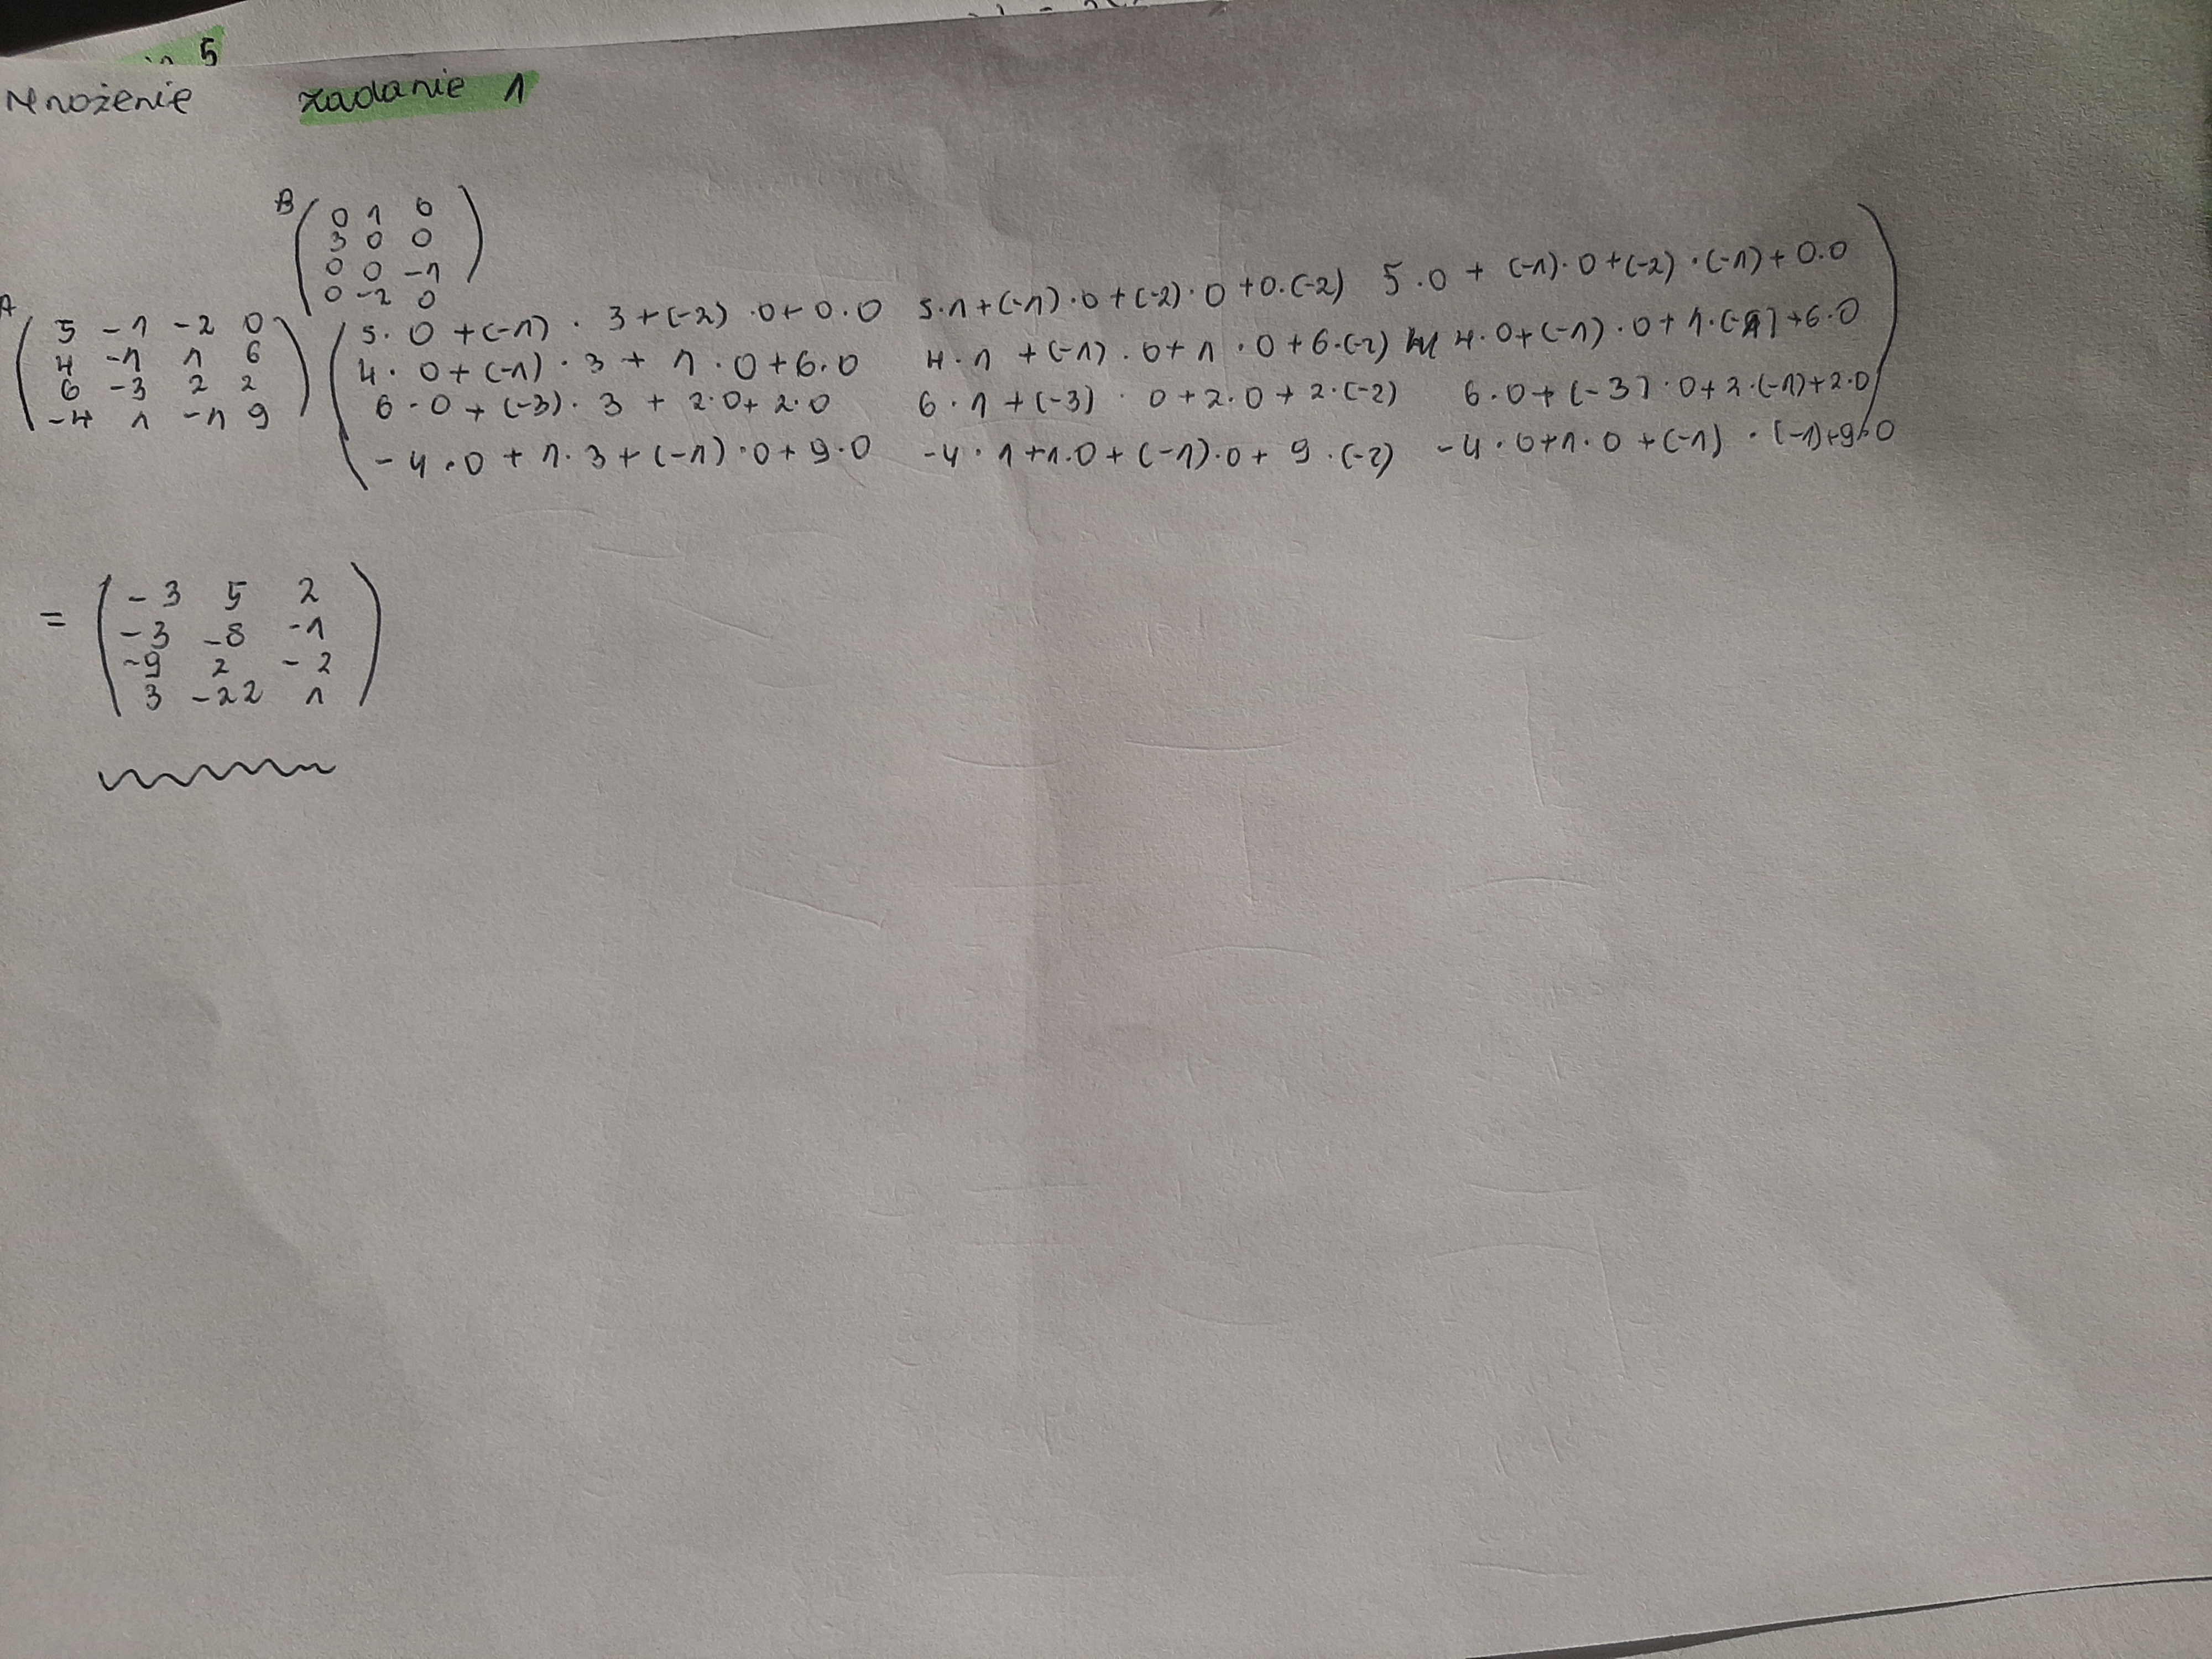 5
Mnożenie zadanie 1
B
0 1 0
3 0 0
0 0 -1
0 -2 0
A
5 -1 -2 0
4 -1 1 6
6 -3 2 2
-4 1 -1 9
5·0+(-1)·3+(-2)·0+0·0 5·1+(-1)·0+(-2)·0+0·(-2) 5·0+(-1)·0+(-2)·(-1)+0·0
4·0+(-1)·3+1·0+6·0 4·1+(-1)·0+1·0+6·(-2) 4·0+(-1)·0+1·(-1)+6·0
6·0+(-3)·3+2·0+2·0 6·1+(-3)·0+2·0+2·(-2) 6·0+(-3)·0+2·(-1)+2·0
-4·0+1·3+(-1)·0+9·0 -4·1+1·0+(-1)·0+9·(-2) -4·0+1·0+(-1)·(-1)+9·0
=
-3 5 2
-3 -8 -1
-9 2 -2
3 -22 1